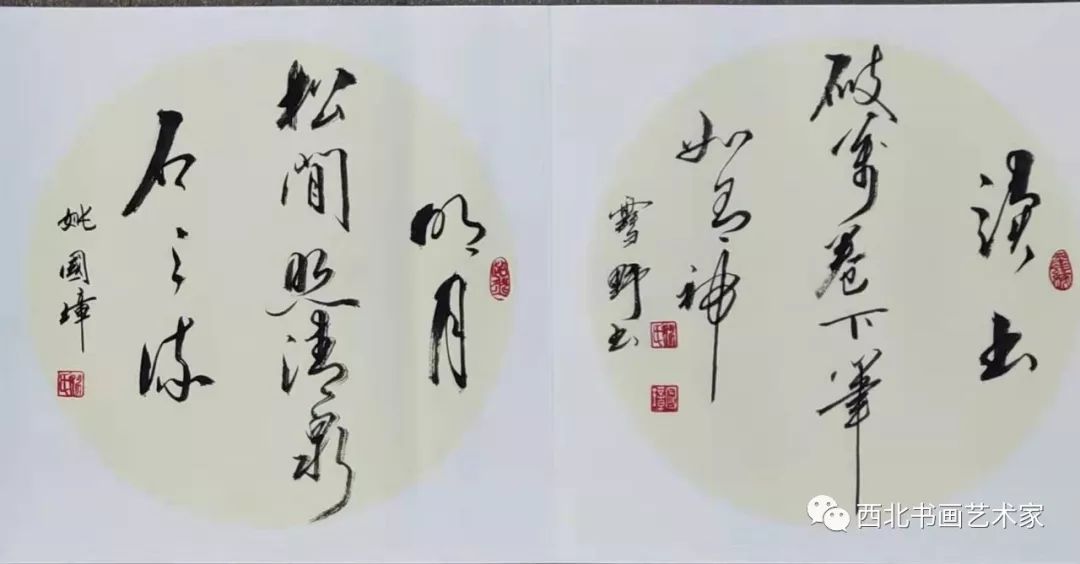 讀書
破萬卷下筆
如有神
雪野书
明月
松間照清泉
石上流
姚國璋
西北书画艺术家